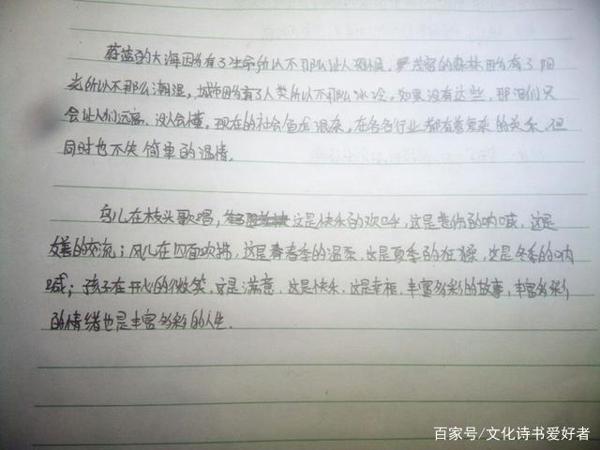 蔚蓝的大海因为有了生命所以不那么让人恐惧，茂密的森林因为有了阳
光所以不那么潮湿，城市因为有了人类所以不那么冰冷，如果没有这些，那泪们只
会让人们远离、没人会懂，现在的社会鱼龙混杂，在各各行业都有着复杂的关系，但
同时也不失简单的温情。
鸟儿在枝头歌唱，这是快乐的欢呼，这是悲伤的呐喊，这是
友善的交流；风儿在四面吹拂，这是春季的温柔，这是夏季的狂燥，这是冬季的呐
喊；孩子在开心的微笑，这是满意，这是快乐，这是幸福，丰富多彩的故事，丰富多彩
的情绪也是丰富多彩的人生．
百家号/文化诗书爱好者